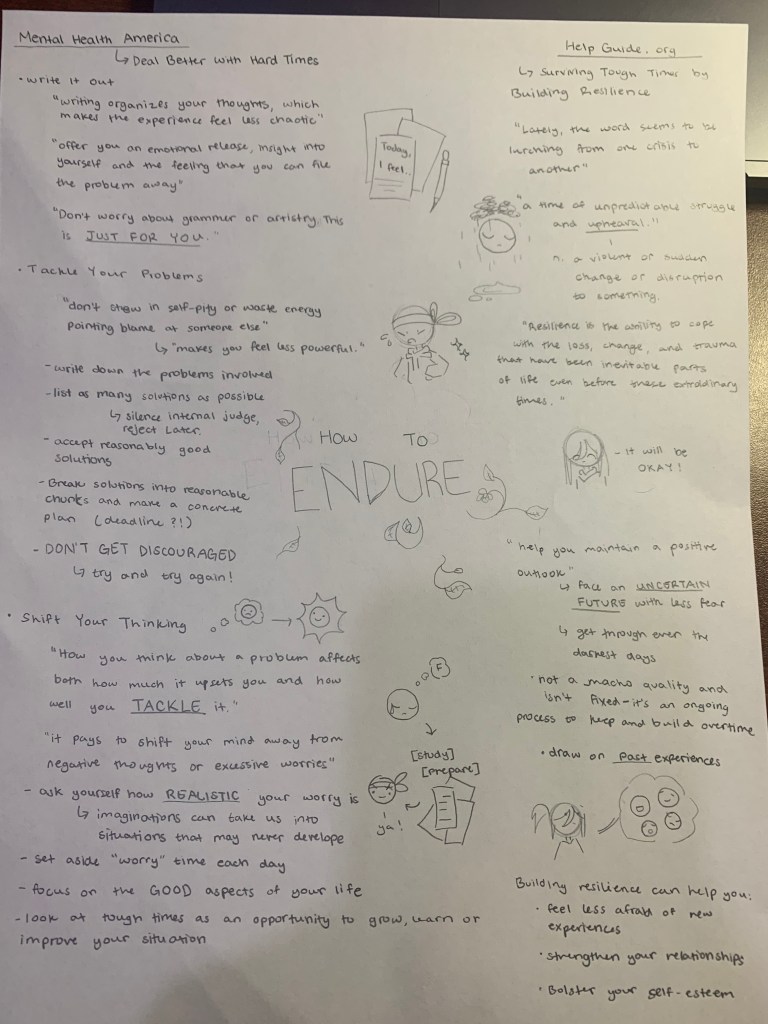 Mental Health America
↳ Deal Better with Hard Times
• Write It Out
"writing organizes your thoughts, which
makes the experience feel less chaotic"
"offer you an emotional release, insight into
yourself and the feeling that you can file
the problem away"
"Don't worry about grammer or artistry. This
is JUST FOR YOU."
• Tackle Your Problems
"don't stew in self-pity or waste energy
pointing blame at someone else"
↳ "makes you feel less powerful."
- write down the problems involved
- list as many solutions as possible
↳ silence internal judge,
reject later.
- accept reasonably good
solutions
- Break solutions into reasonable
chunks and make a concrete
plan (deadline?!)
- DON'T GET DISCOURAGED
↳ try and try again!
• Shift Your Thinking
"How you think about a problem affects
both how much it upsets you and how
well you TACKLE it."
"it pays to shift your mind away from
negative thoughts or excessive worries"
- ask yourself how REALISTIC your worry is
↳ imaginations can take us into
situations that may never develope
- set aside "worry" time each day
- focus on the GOOD aspects of your life
- look at tough times as an opportunity to grow, learn or
improve your situation
Today,
I feel...
HOW TO
ENDURE
F
[study]
[prepare]
ya!
Help Guide.org
↳ Surviving Tough Times by
Building Resilience
"Lately, the word seems to be
lurching from one crisis to
another"
"a time of unpredictable struggle
and upheaval."
n. a violent or sudden
change or disruption
to something.
"Resilience is the ability to cope
with the loss, change, and trauma
that have been inevitable parts
of life even before these extraordinary
times."
- it will be
OKAY!
"help you maintain a positive
outlook"
↳ Face an UNCERTAIN
FUTURE with less fear
↳ get through even the
darkest days
• not a macho quality and
isn't fixed-it's an ongoing
process to keep and build overtime
• draw on past experiences
Building resilience can help you:
• feel less afraid of new
experiences
• strengthen your relationships
• Bolster your self-esteem